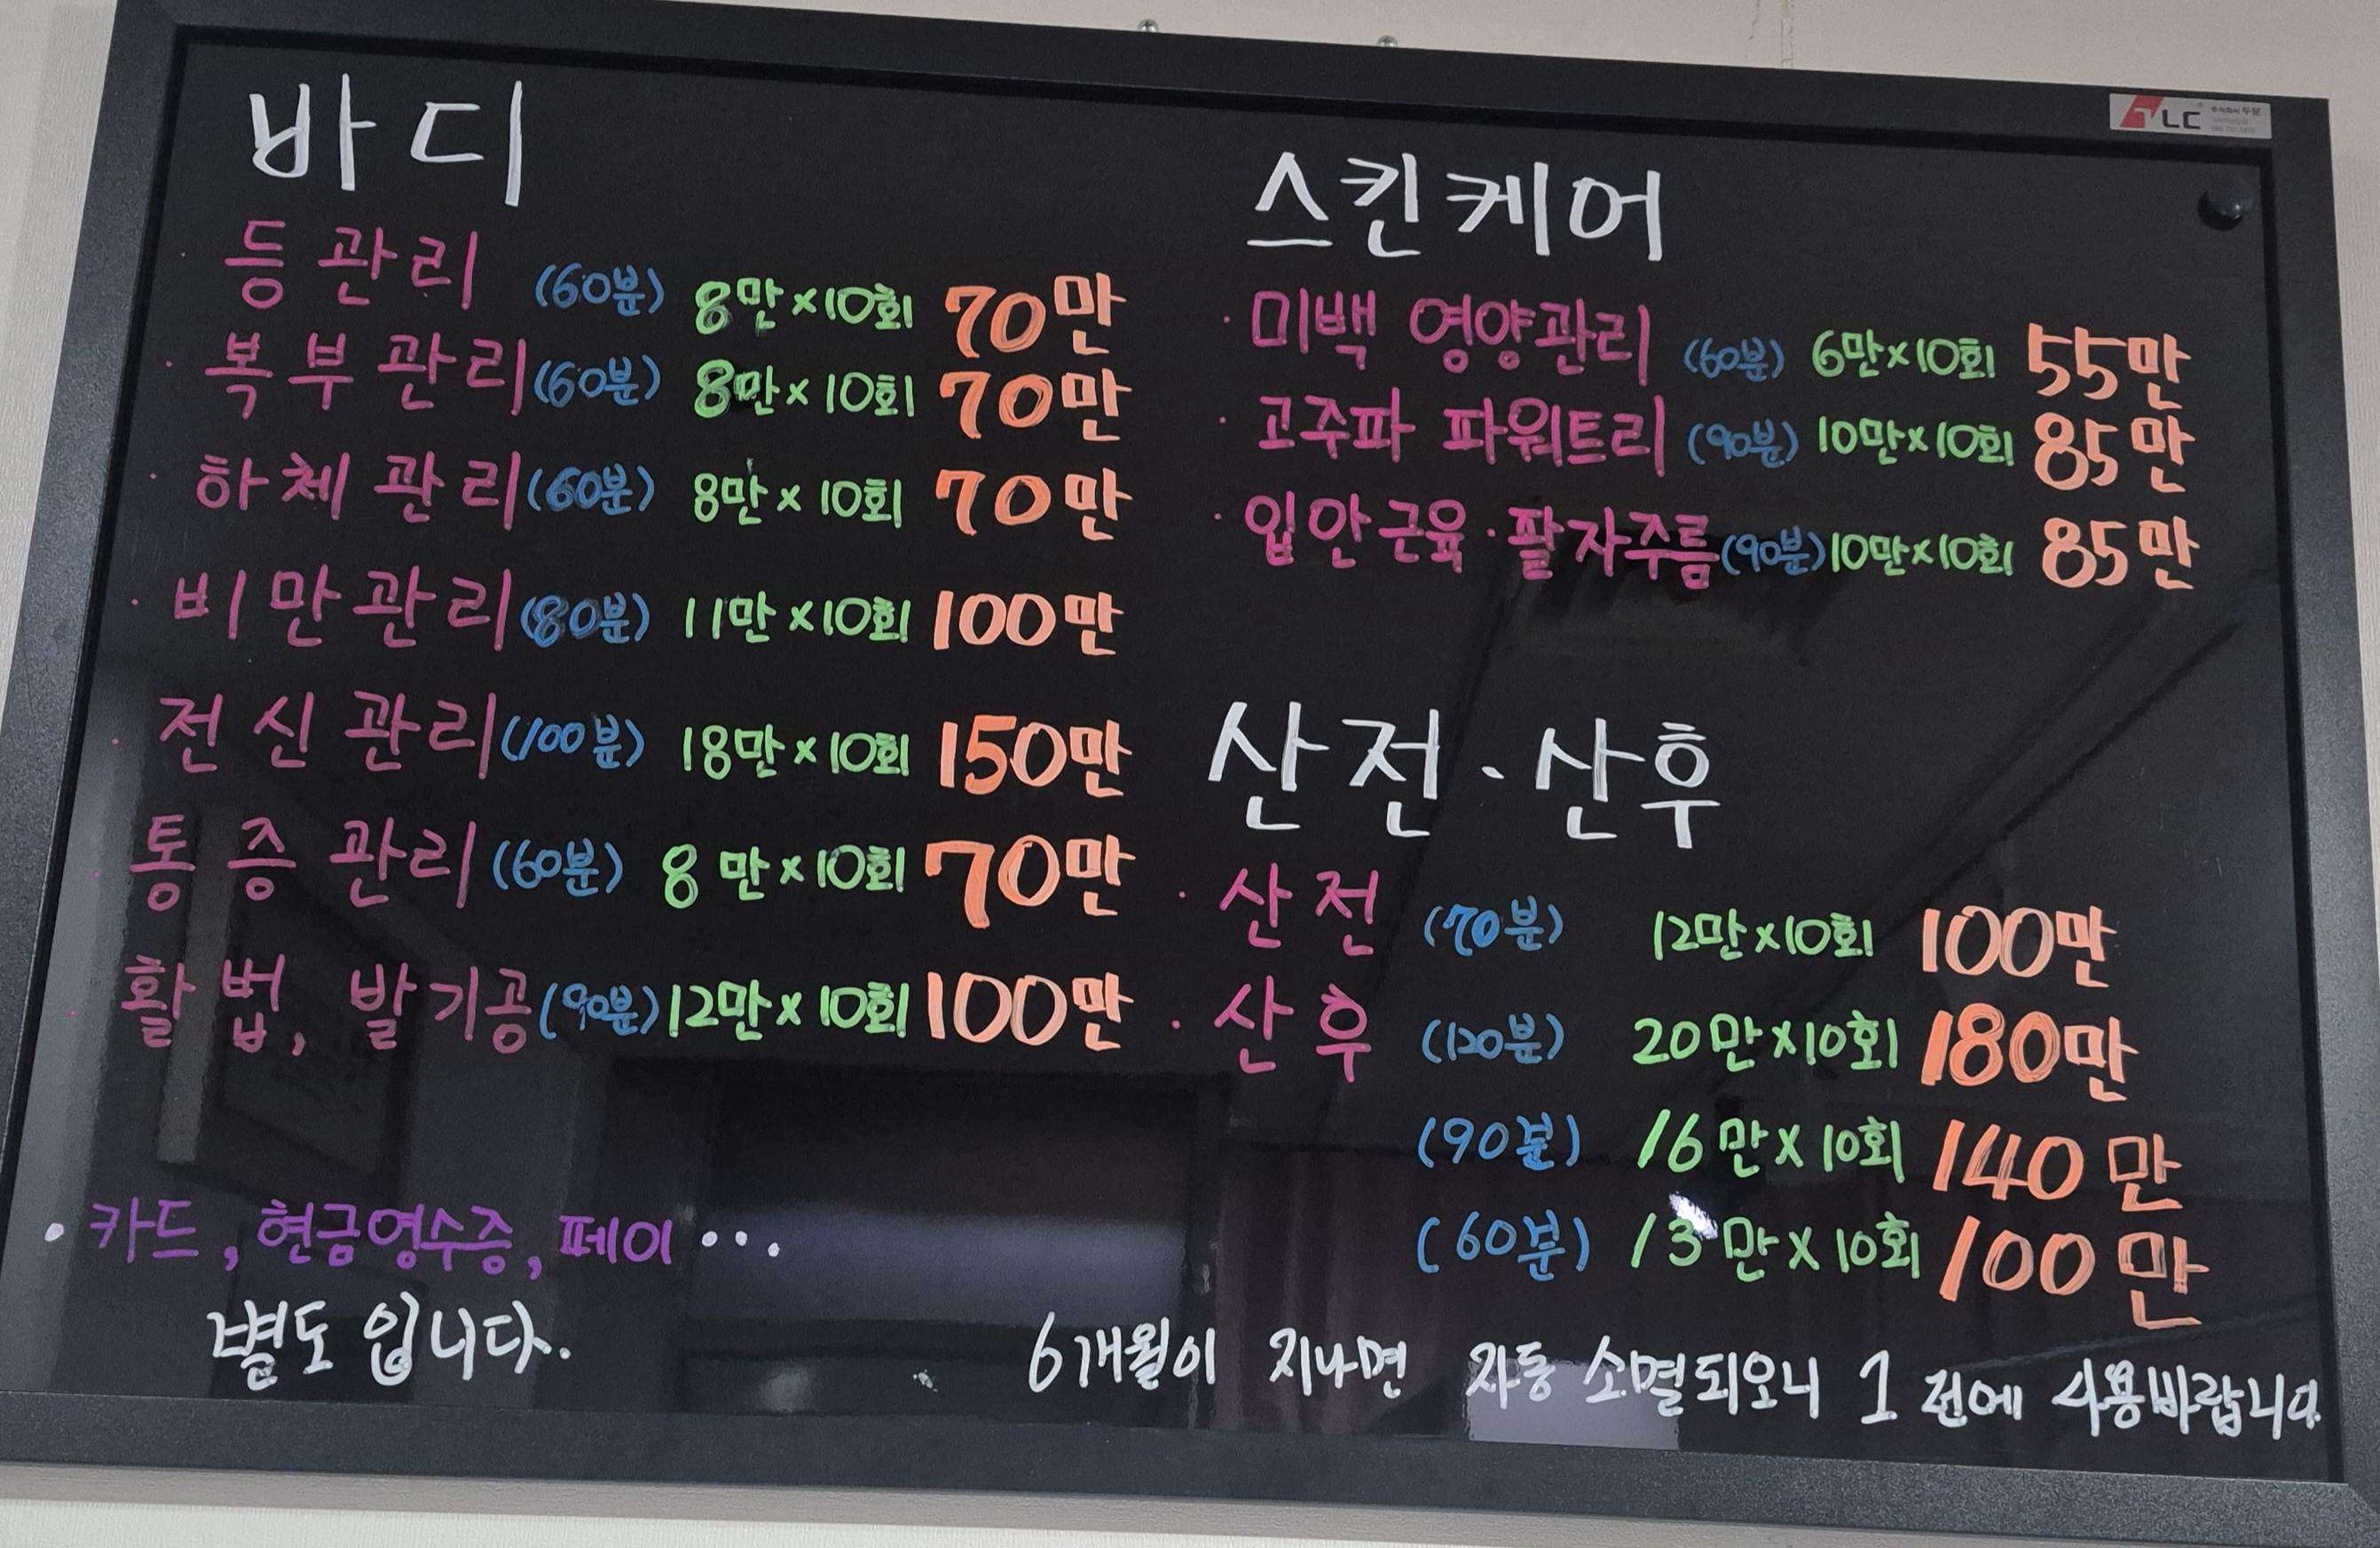 바디
등관리 (60분) 8만×10회 70만
복부관리 (60분) 8만×10회 70만
하체관리 (60분) 8만×10회 70만
비만관리 (80분) 11만×10회 100만
전신관리 (100분) 18만×10회 150만
통증관리 (60분) 8만×10회 70만
활법, 발기공 (90분) 12만×10회 100만
• 카드, 현금영수증, 페이 •••
별도 입니다.
TLC
스킨케어
· 미백 영양관리 (60분) 6만×10회 55만
· 고주파 파워트리 (90분) 10만×10회 85만
· 입안근육·팔자주름 (90분) 10만×10회 85만
산전·산후
· 산전 (70분) 12만×10회 100만
· 산후 (120분) 20만×10회 180만
(90분) 16만×10회 140만
(60분) 13만×10회 100만
6개월이 지나면 자동 소멸되오니 1 전에 사용바랍니다